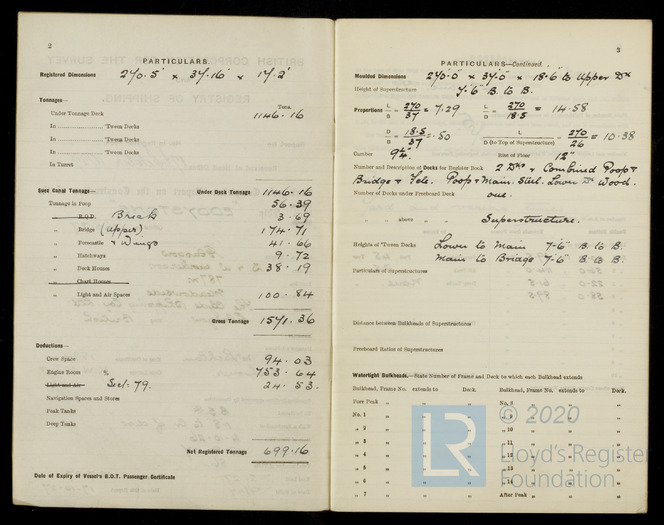 2
PARTICULARS.
Registered Dimensions 270.5' × 37.16' × 17.2'
Tonnages— Tons.
Under Tonnage Deck 1146.16
In 'Tween Decks
In 'Tween Decks
In 'Tween Decks
In Turret
Suez Canal Tonnage— Under Deck Tonnage 1146.16
Tonnage in Poop 56.39
„ R.Q.D. Break 3.69
„ Bridge (Upper) 174.71
„ Forecastle & Wings 41.66
„ Hatchways 9.72
„ Deck Houses 38.19
„ Chart Houses
„ Light and Air Spaces 100.84
Gross Tonnage 1571.36
Deductions—
Crew Space 94.03
Engine Room % 753.64
Light and Air Sect. 79. 24.53
Navigation Spaces and Stores
Peak Tanks
Deep Tanks
Net Registered Tonnage 699.16
Date of Expiry of Vessel's B.O.T. Passenger Certificate
3
PARTICULARS—Continued.
Moulded Dimensions 270.0" × 37.0" × 18.6 to Upper Dk
Height of Superstructure 7'.6" B. to B.
Proportions L/B = 270/37 = 7.29 L/D = 270/18.5 = 14.58
D/B = 18.5/37 = .50 L/D (to Top of Superstructure) = 270/26 = 10.38
Camber 9¼" Rise of Floor 12"
Number and Description of Decks for Register Book 2 Dks & Combined Poop &
Bridge & Fcle. Poop & Main. Steel. Lower Dk Wood.
Number of Decks under Freeboard Deck one.
„ „ above „ „ Superstructure.
Heights of 'Tween Decks Lower to Main 7-6" B to B.
Main to Bridge 7-6" B to B.
Particulars of Superstructures
Distance between Bulkheads of Superstructures
Freeboard Ratios of Superstructures
Watertight Bulkheads.—State Number of Frame and Deck to which each Bulkhead extends
Bulkhead, Frame No. extends to Deck. Bulkhead, Frame No. extends to Deck.
Fore Peak „ „ „ No. 8 „ „ „
No. 1 „ „ „ „ 9 „ „
„ 2 „ „ „ 10 „
„ 3 „ „ „ 11 „
„ 4 „ „ „ 12 „
„ 5 „ „ „ 13 „
„ 6 „ „ „ 14 „
„ 7 „ „ After Peak „ „ „
© 2020
LR
Lloyd's Register
Foundation